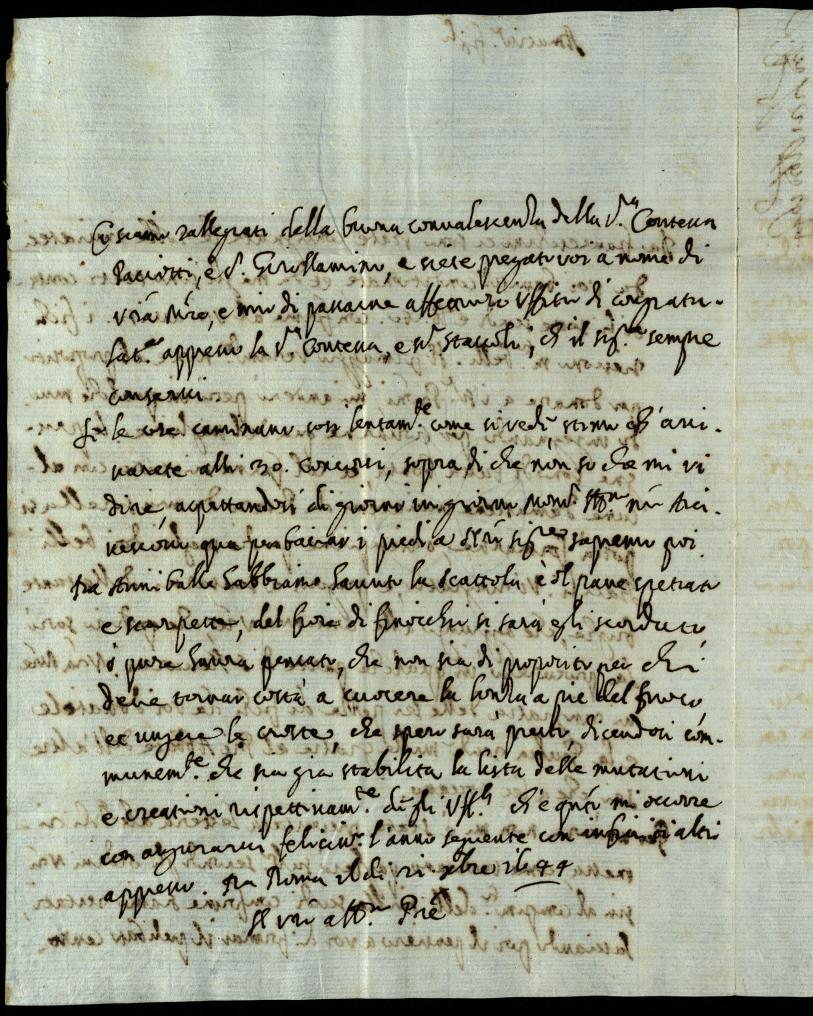 Ci siamo rallegrati della buona convalescenza della S.ra Contessa
Paciotti, e S. Girollamino, e siete pregati voi a nome di
v̅r̅a M̅r̅e, e mio di passarne affettuosi Uffitii di congratu-
lat.ne appresso la S.ra Contessa, e S.r Staccoli, ch'il Sig.re sempre
conservi
Se le cose caminano così lentam.te come si vede, stimo ch'arri-
varete alli 30. Concorsi, sopra di che non so che mi vi
dire, aspettandosi di giorno in giorno Mons.r n̅r̅o Arci-
vescovo qua per baciar i piedi a S̅r̅e sapremo poi
Da Annibale habbiamo havuto la scattola e il pane spetiato
e scarpette, del fiore di finocchi si sarà egli scordato
ò pure havrà pensato, che non sia di proposito per chi
deve tornar costà a cuocere la lonza a piè del fuoco
et ungere le croste, che spero sarà presto, dicendosi com-
munem.te che sia già stabilita la lista delle mutationi
e creationi rispettivam.te degli Uff.li Ch'è q̅n̅to mi occorre
con augurarvi felicis.o l'anno seguente con infiniti altri
appresso. Da Roma il dì 21 Xbre 1644
Il v̅r̅o aff.mo P̅r̅e